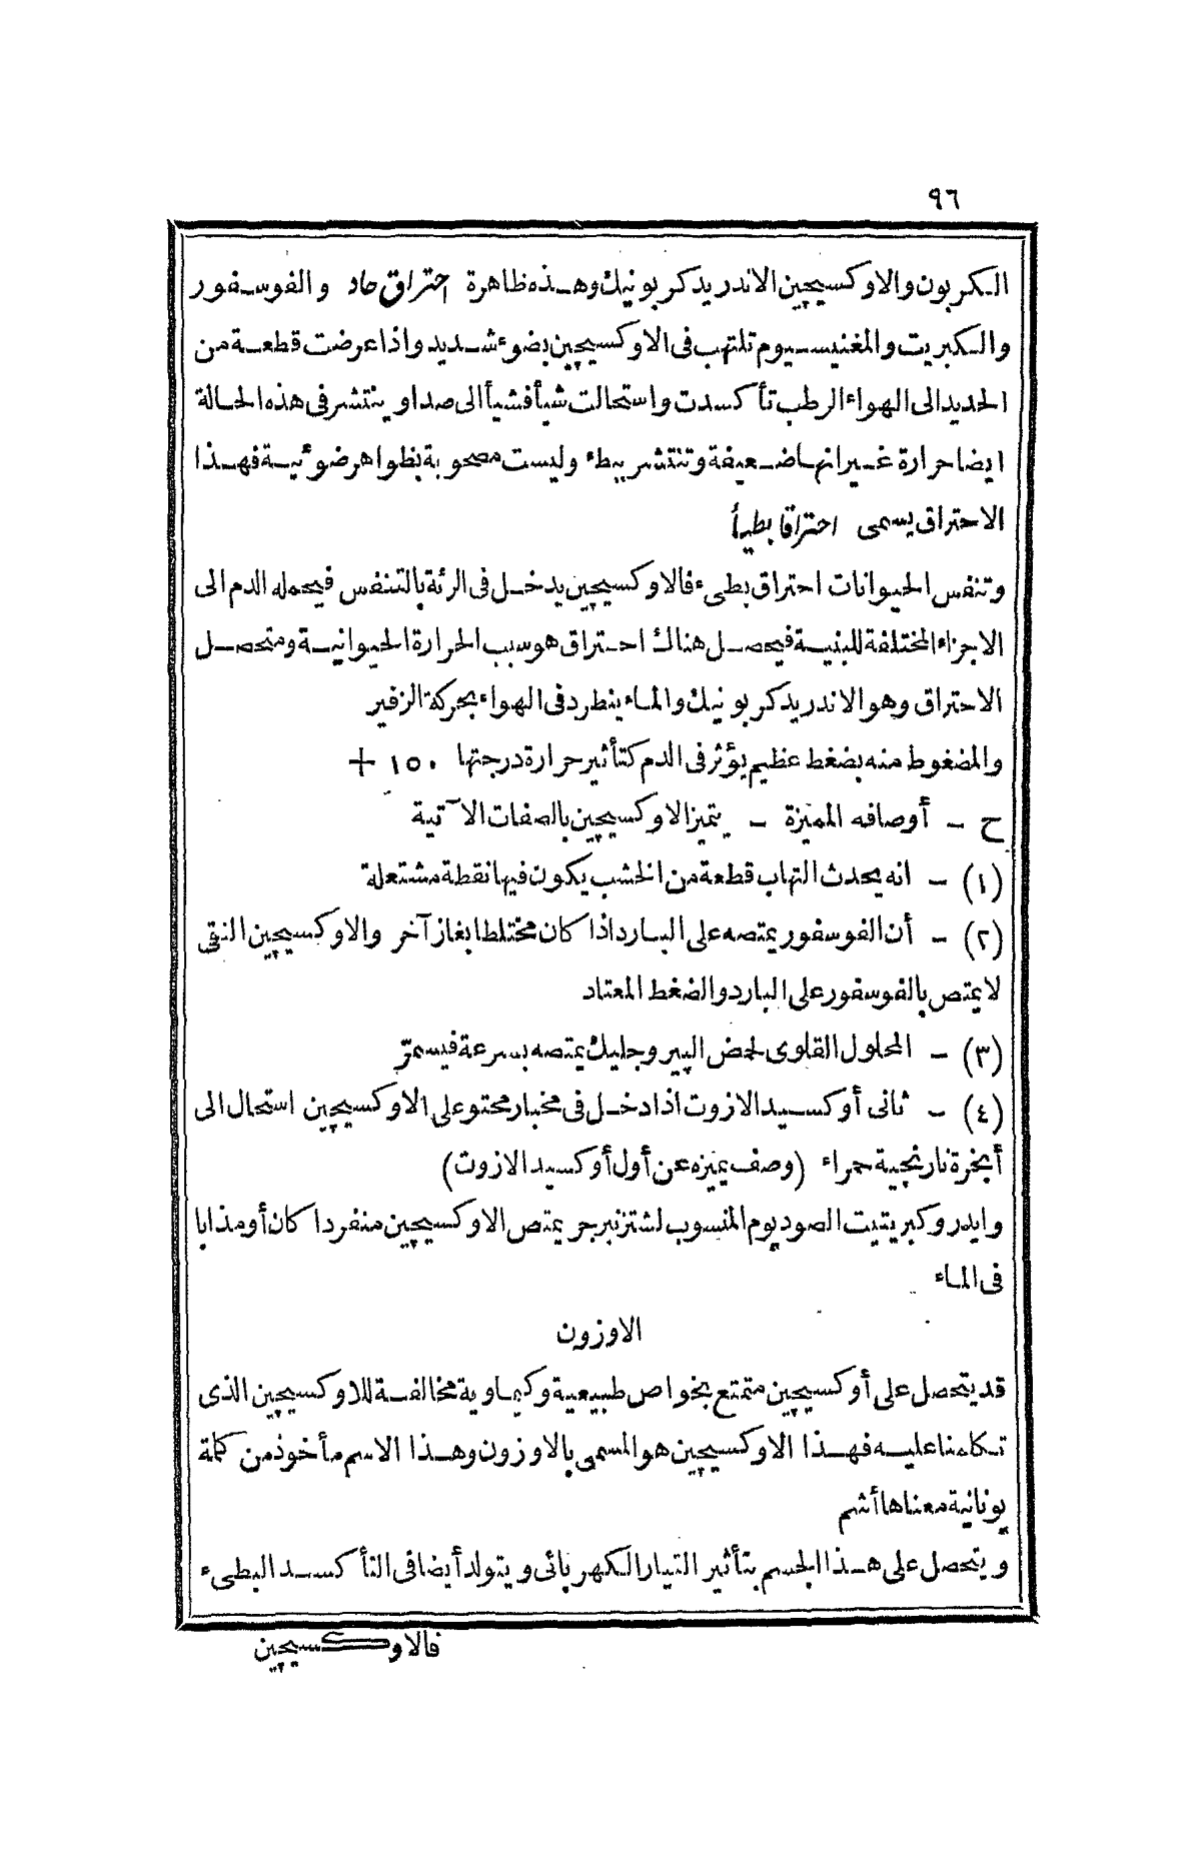 ٩٦
الكربون والاوكسيچين الاندريدكربونيك وهذه ظاهرة احتراق حاد والفوسفور
والكبريت والمغنيسيوم تلتهب فى الاوكسيچين بضوء شديد واذا عرضت قطعة من
الحديد الى الهواء الرطب تأكسدت واستحالت شيأ فشيأ الى صدا وينتشر فى هذه الحالة
ايضا حرارة غير انها ضعيفة وتنتشر ببطء وليست مصحوبة بظواهر ضوئية فهذا
الاحتراق يسمى احتراقا بطيأ
وتنفس الحيوانات احتراق بطىء فالاوكسيچين يدخل فى الرئة بالتنفس فيحمله الدم الى
الاجزاء المختلفة للبنية فيحصل هناك احتراق هو سبب الحرارة الحيوانية ومتحصل
الاحتراق وهو الاندريدكربونيك والماء ينطرد فى الهواء بحركة الزفير
والمضغوط منه بضغط عظيم يؤثر فى الدم كتأثير حرارة درجتها ١٥٠ +
ح - أوصافه المميزة - يتميز الاوكسيچين بالصفات الآتية
(١) - انه يحدث التهاب قطعة من الخشب يكون فيها نقطة مشتعلة
(٢) - أن الفوسفور يمتصه على البارد اذا كان مختلطا بغاز آخر والاوكسيچين النقى
لا يمتص بالفوسفور على البارد والضغط المعتاد
(٣) - المحلول القلوى لحمض البيروجليك يمتصه بسرعة فيسمرّ
(٤) - ثانى أوكسيد الازوت اذا دخل فى مخبار محتو على الاوكسيچين استحال الى
أبخرة نارنجية حمراء (وصف يميزه عن أول أوكسيد الازوت)
وايدروكبريتيت الصوديوم المنسوب لشتزنبرجر يمتص الاوكسيچين منفردا كان أو مذابا
فى الماء
الاوزون
قد يتحصل على أوكسيچين متمتع بخواص طبيعية وكيماوية مخالفة للاوكسيچين الذى
تكلمنا عليه فهذا الاوكسيچين هو المسمى بالاوزون وهذا الاسم مأخوذ من كلمة
يونانية معناها أشم
ويتحصل على هذا الجسم بتأثير التيار الكهربائى ويتولد أيضا فى التأكسد البطىء
فالاوكسيچين